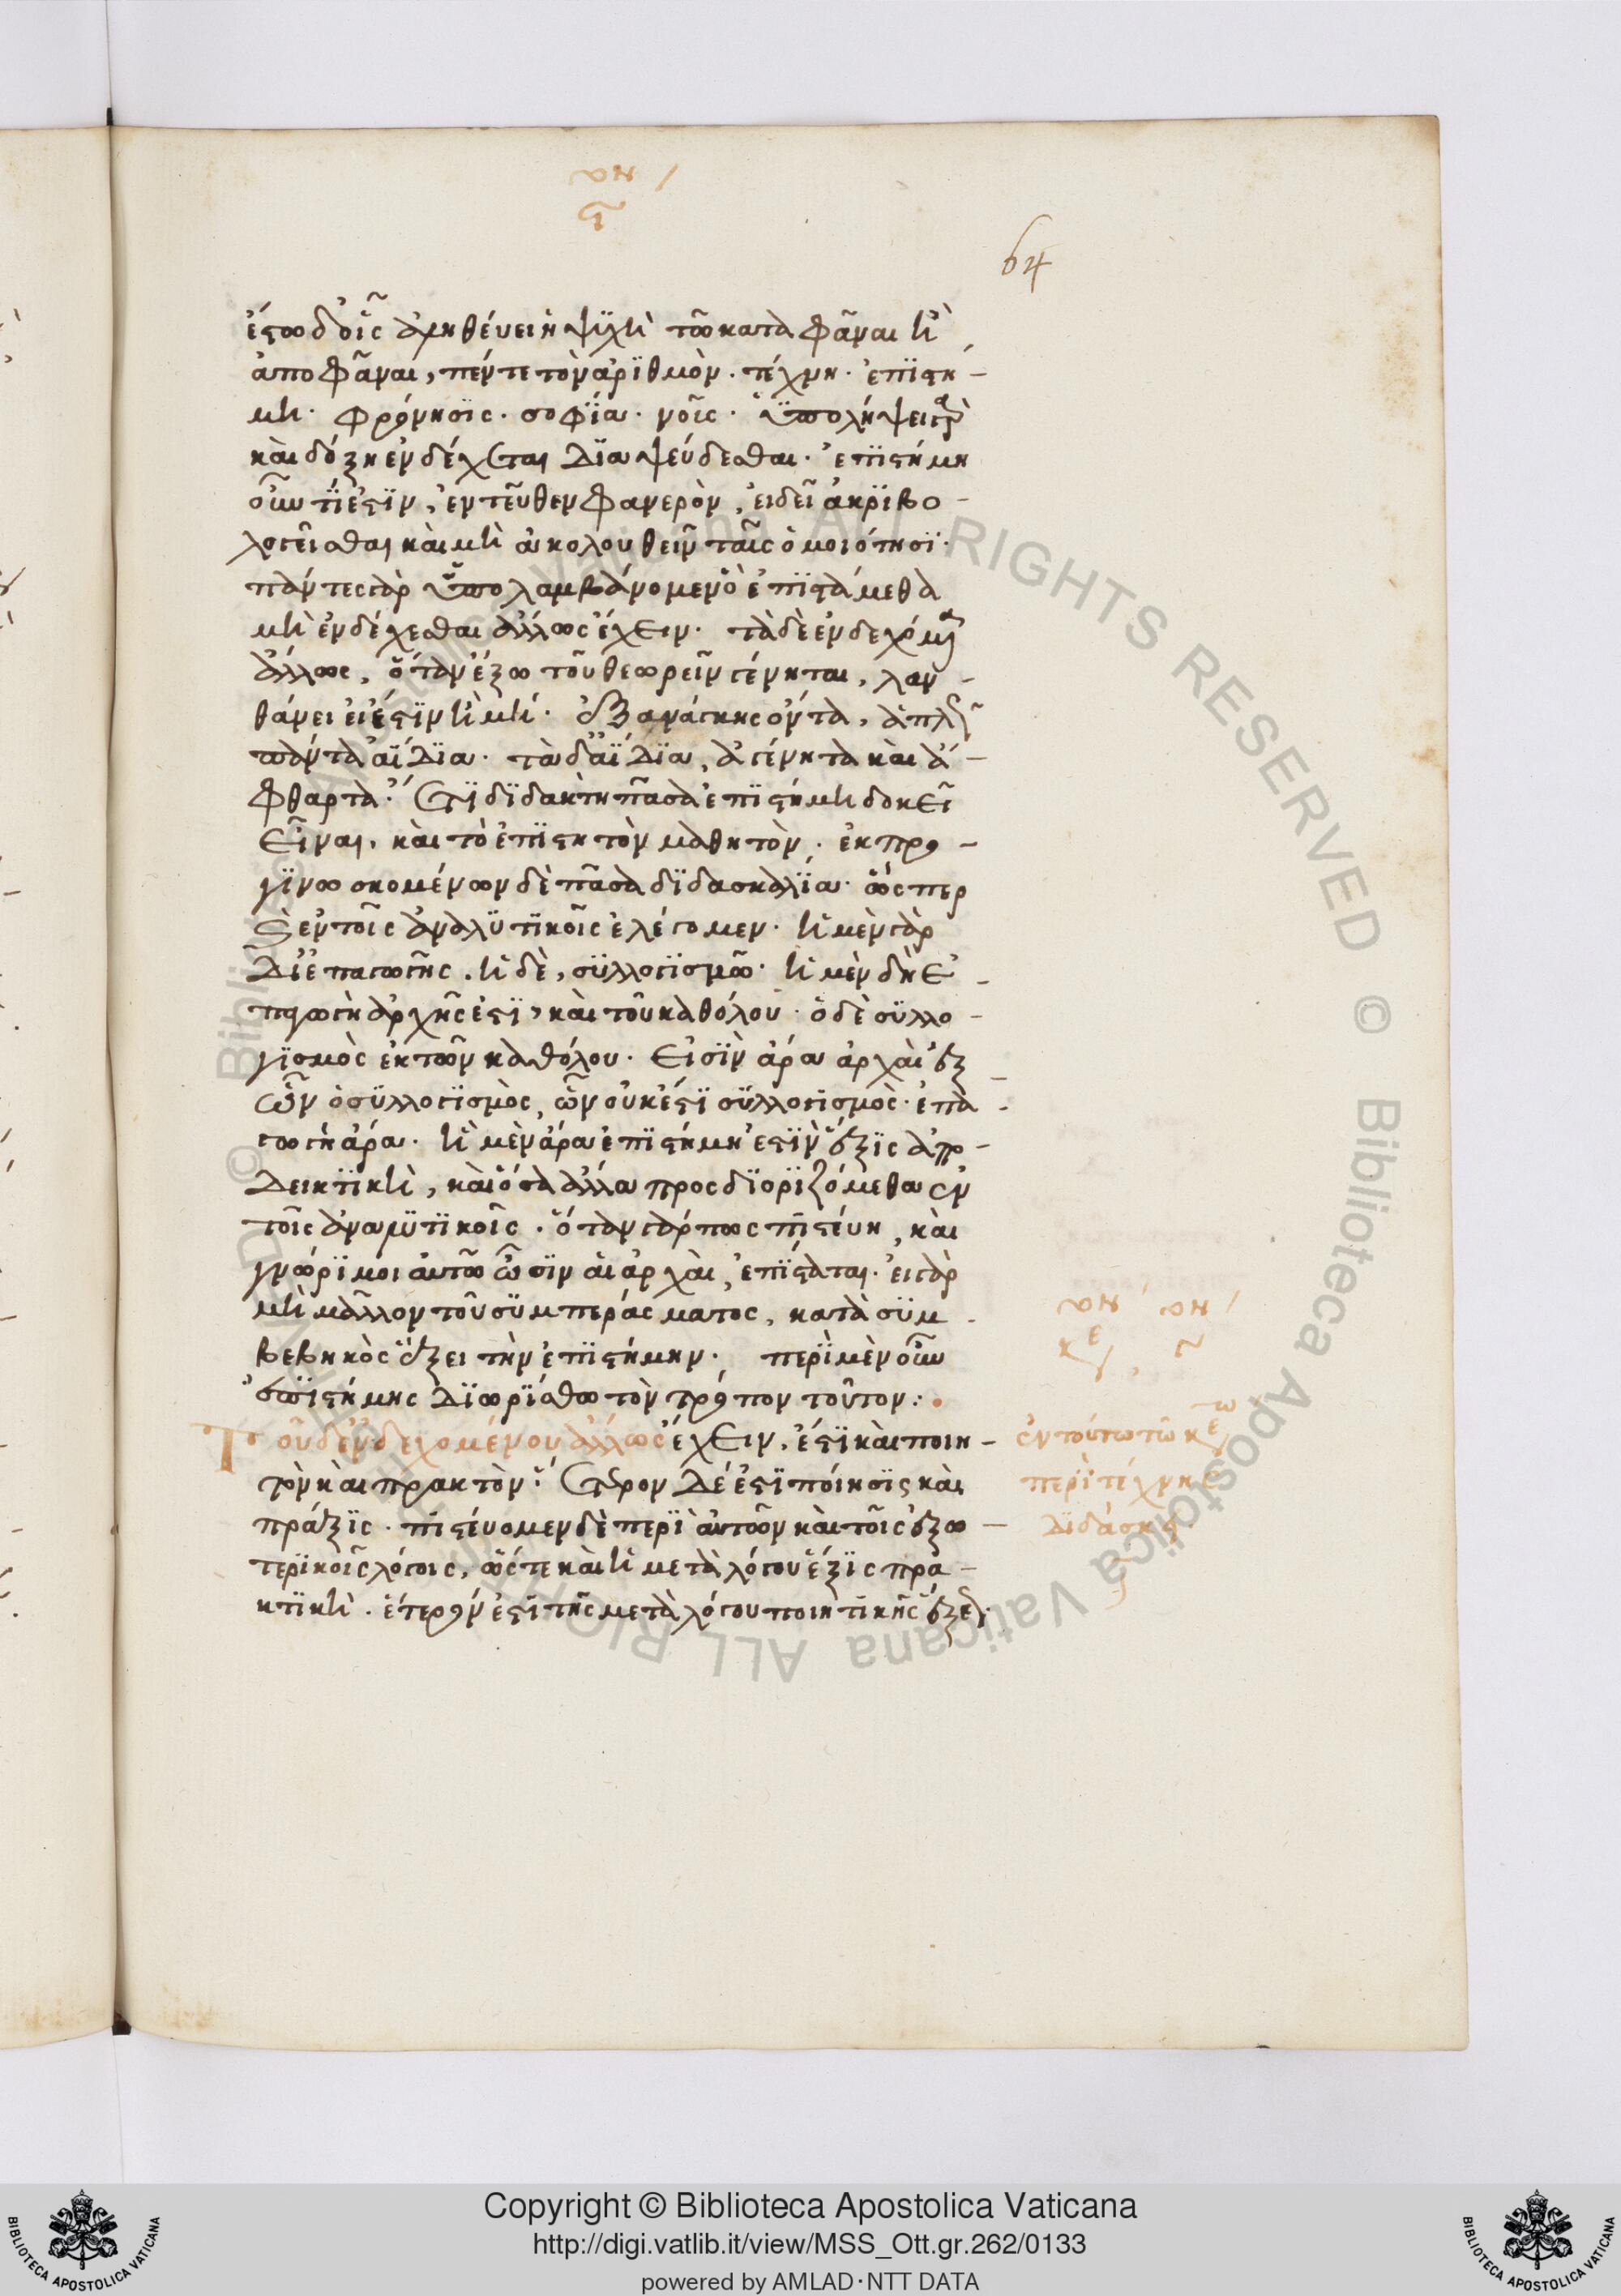 64
ἔστω δ' οἷς ἀληθεύει ἡ ψυχὴ τῶ καταφᾶναι ἢ
ἀποφᾶναι, πέντε τὸν ἀριθμὸν. τέχνη. ἐπιστή-
μη. φρόνησις. σοφία. νοῦς. ὑπολήψει γὰρ
καὶ δόξη ἐνδέχεται διαψεύδεσθαι. ἐπιστήμη
οὖν τί ἐστιν, ἐντεῦθεν φανερὸν, εἰ δεῖ ἀκριβο-
λογεῖσθαι καὶ μὴ ἀκολουθεῖν ταῖς ὁμοιότησι.
πάντες γὰρ ὑπολαμβάνομεν ὃ ἐπιστάμεθα
μὴ ἐνδέχεσθαι ἄλλως ἔχειν. τὰ δὲ ἐνδεχόμενα
ἄλλως, ὅταν ἔξω τοῦ θεωρεῖν γένηται, λαν-
θάνει εἰ ἔστιν ἢ μή. ἐξ ἀνάγκης ὄντα, ἁπλῶς
πάντα ἀΐδια. τὰ δ' ἀΐδια, ἀγένητα καὶ ἄ-
φθαρτα. ἔτι διδακτὴ πᾶσα ἐπιστήμη δοκεῖ
εἶναι, καὶ τὸ ἐπιστητὸν μαθητὸν. ἐκ προ-
γινωσκομένων δὲ πᾶσα διδασκαλία. ὥσπερ
καὶ ἐν τοῖς ἀναλυτικοῖς ἐλέγομεν. ἡ μὲν γὰρ
δι' ἐπαγωγῆς. ἡ δὲ, συλλογισμῶ. ἡ μὲν δὴ ἐ-
παγωγὴ ἀρχῆς ἐστι, καὶ τοῦ καθόλου. ὁ δὲ συλλο-
γισμὸς ἐκ τῶν καθόλου. εἰσὶν ἄρα ἀρχαὶ ἐξ
ὧν ὁ συλλογισμὸς, ὧν οὐκ ἔστι συλλογισμὸς. ἐπα-
γωγὴ ἄρα. ἡ μὲν ἄρα ἐπιστήμη ἐστὶν ἕξις ἀπο-
δεικτικὴ, καὶ ὅσα ἄλλα προσδιοριζόμεθα ἐν
τοῖς ἀναλυτικοῖς. ὅταν γάρ πως πιστεύη, καὶ
γνώριμοι αὐτῶ ὦσιν αἱ ἀρχαὶ, ἐπίσταται. εἰ γὰρ
μὴ μᾶλλον τοῦ συμπεράσματος, κατὰ συμ-
βεβηκὸς ἕξει τὴν ἐπιστήμην. περὶ μὲν οὖν
ἐπιστήμης διωρίσθω τὸν τρόπον τοῦτον:.
Τοῦ δ' ἐνδεχομένου ἄλλως ἔχειν, ἔστι καὶ ποιη-
τὸν καὶ πρακτὸν. ἕτερον δέ ἐστι ποίησις καὶ
πρᾶξις. πιστεύομεν δὲ περὶ αὐτῶν καὶ τοῖς ἐξω-
τερικοῖς λόγοις, ὥστε καὶ ἡ μετὰ λόγου ἕξις πρα-
κτικὴ. ἕτερόν ἐστι τῆς μετὰ λόγου ποιητικῆς ἕξεως.
ἐν τούτω τῶ κεφαλαίω
περὶ τέχνης
διδάσκει
Copyright © Biblioteca Apostolica Vaticana
http://digi.vatlib.it/view/MSS_Ott.gr.262/0133
powered by AMLAD·NTT DATA